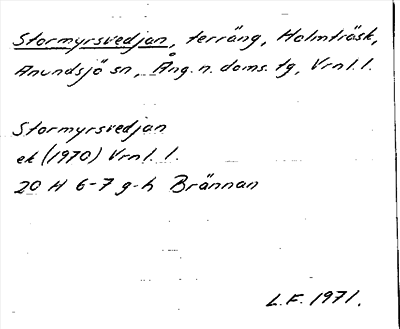 Stormyrsvedjan, terräng, Holmträsk,
Anundsjö sn, Ång. n. doms. tg, Vrnl. l.
Stormyrsvedjan
ek (1970) Vrnl. l.
20 H 6-7 g-h Brännan
L.F. 1971.